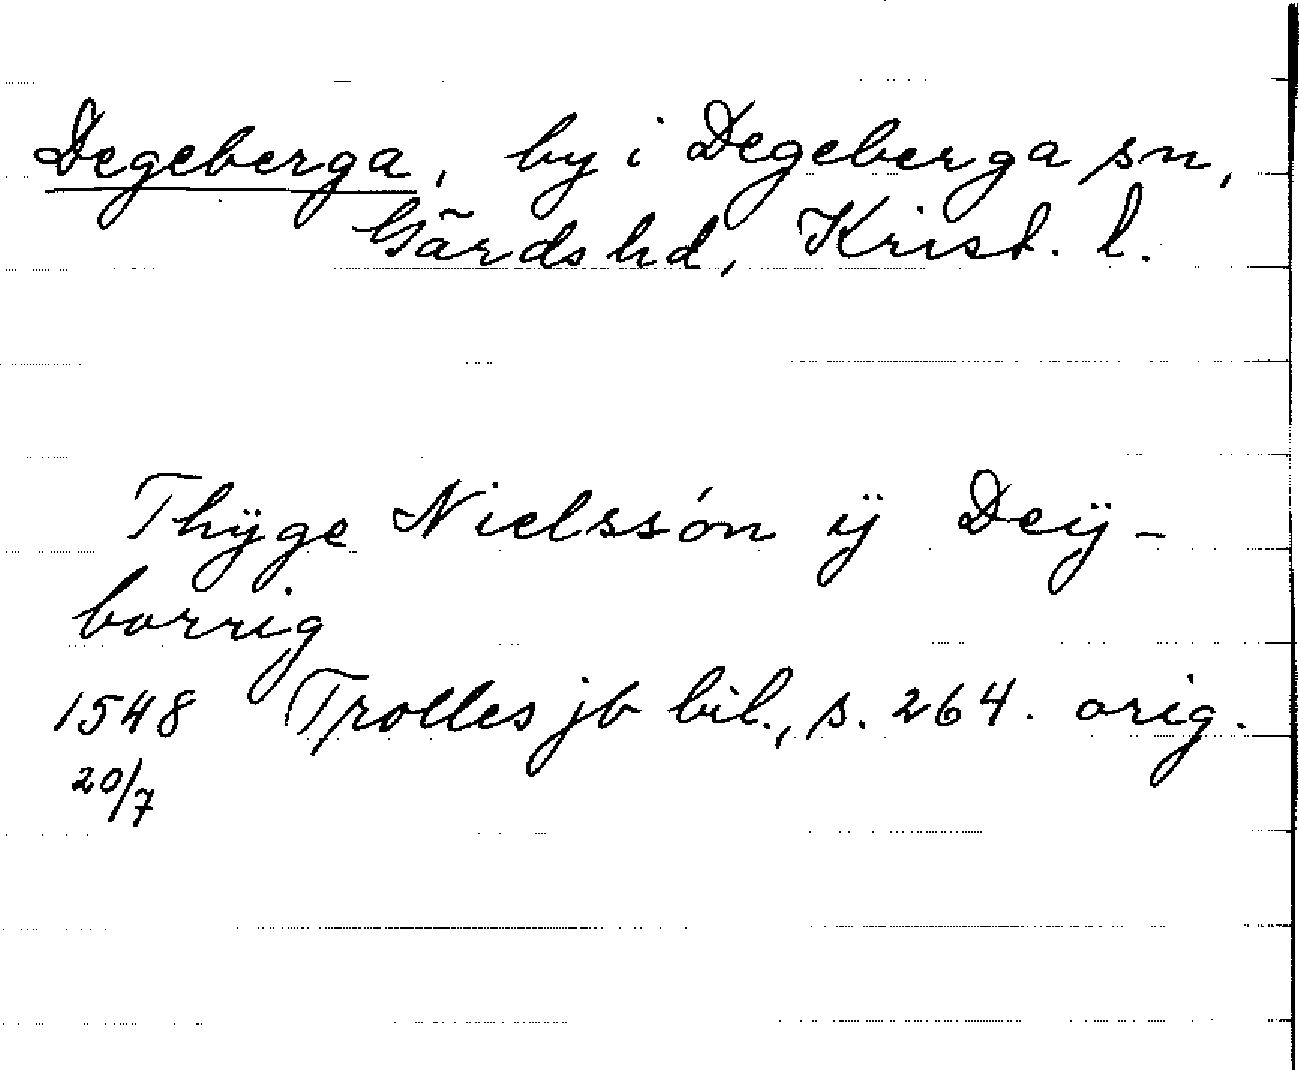 Degeberga, by i Degeberga sn,
Gärds hd, Krist. l.
Thÿge Nielssón ÿ Deÿ-
borrig
1548 Trolles jb bil., s. 264. orig.
20/7